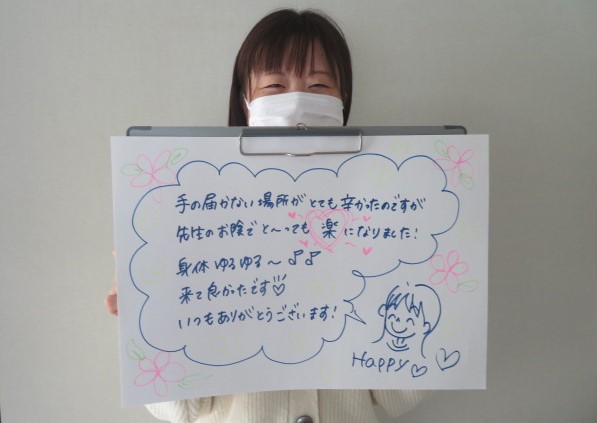 手の届かない場所がとても辛かったのですが
先生のお陰でと〜っても楽になりました!
身体ゆるゆる〜♪♪
来て良かったです♡
いつもありがとうございます!
Happy♡♡